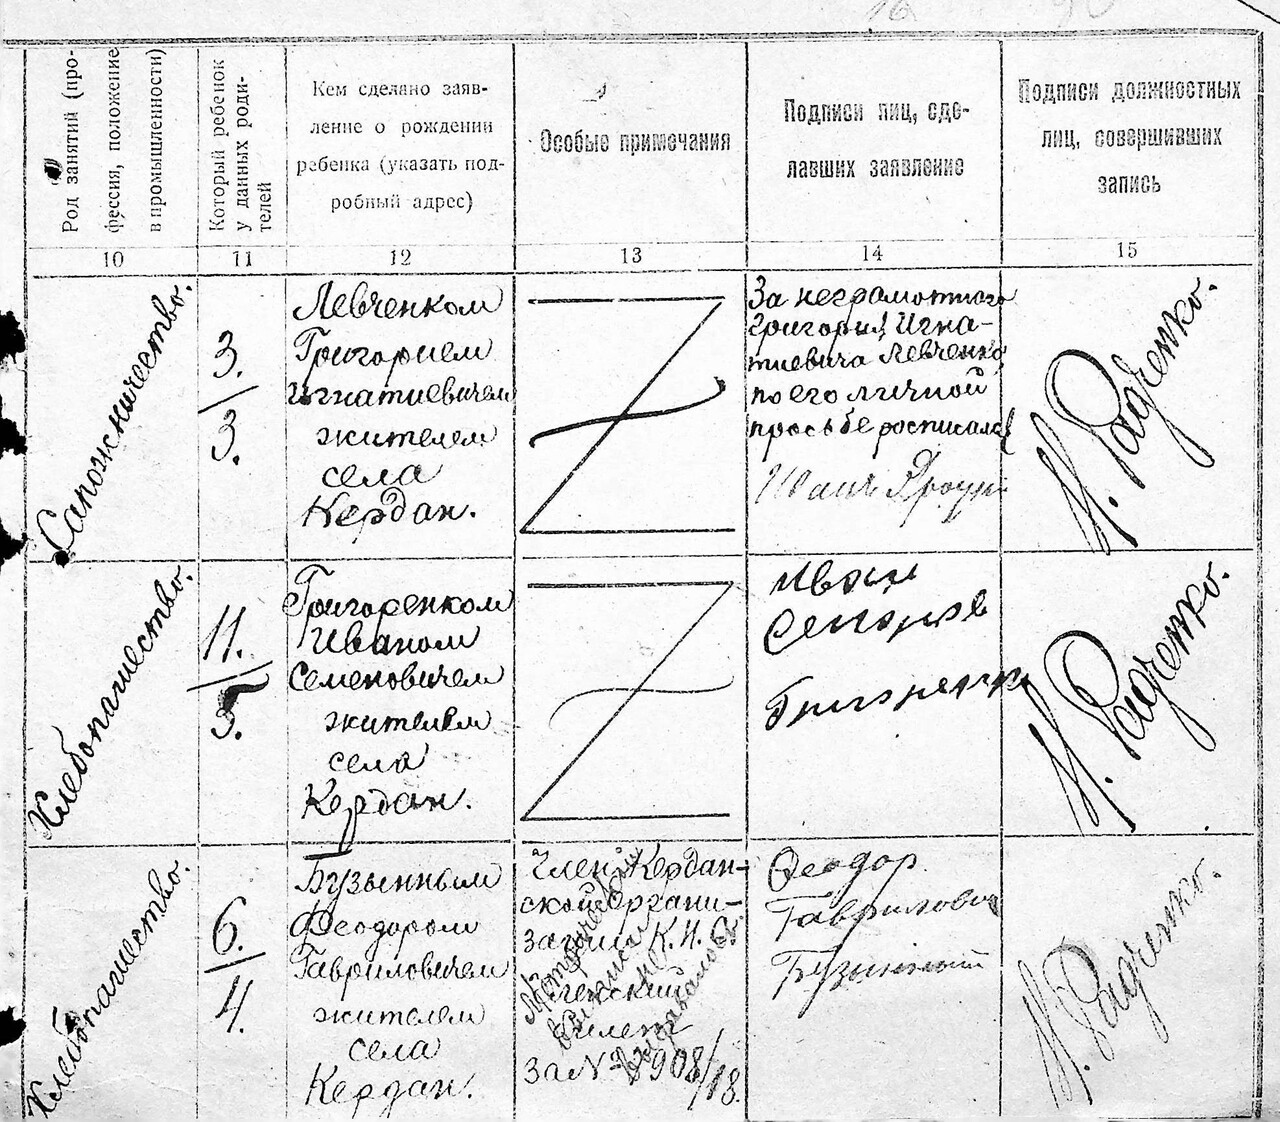 Род занятий (про-
фессия, положение
в промышленности)
Который ребенок
у данных роди-
телей
Кем сделано заяв-
ление о рождении
ребенка (указать под-
робный адрес)
Особые примечания
Подписи лиц, сде-
лавших заявление
Подписи должностных
лиц, совершивших
запись
10
11
12
13
14
15
Сапожничество.
3.
3.
Левченком
Григорием
Игнатиевичем
жителем
села
Кердан.
За неграмотного
Григория Игна-
тиевича Левченко
по его личной
просьбе росписался
Иван
Хлебопашество.
11.
5.
Григоренком
Иваном
Семеновичем
жителем
села
Кердан.
Иван
Григоренко
Хлебопашество.
6.
4.
Бузынным
Феодором
Гавриловичем
жителем
села
Кердан.
Член Кердан-
ской Органи-
зации К.Н.С.
Членский
Билет
За № 908/18.
Феодор
Гаврилович
Бузынный